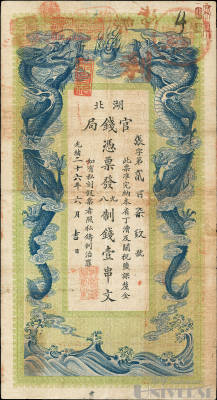 湖北
官錢局
張字第貳百柒玖號
此票准完納本省丁漕及關稅鹽課釐金
憑票發九八制錢壹串文
如有私刻假票者照私鑄例治罪
光緒二十六年六月吉日
4